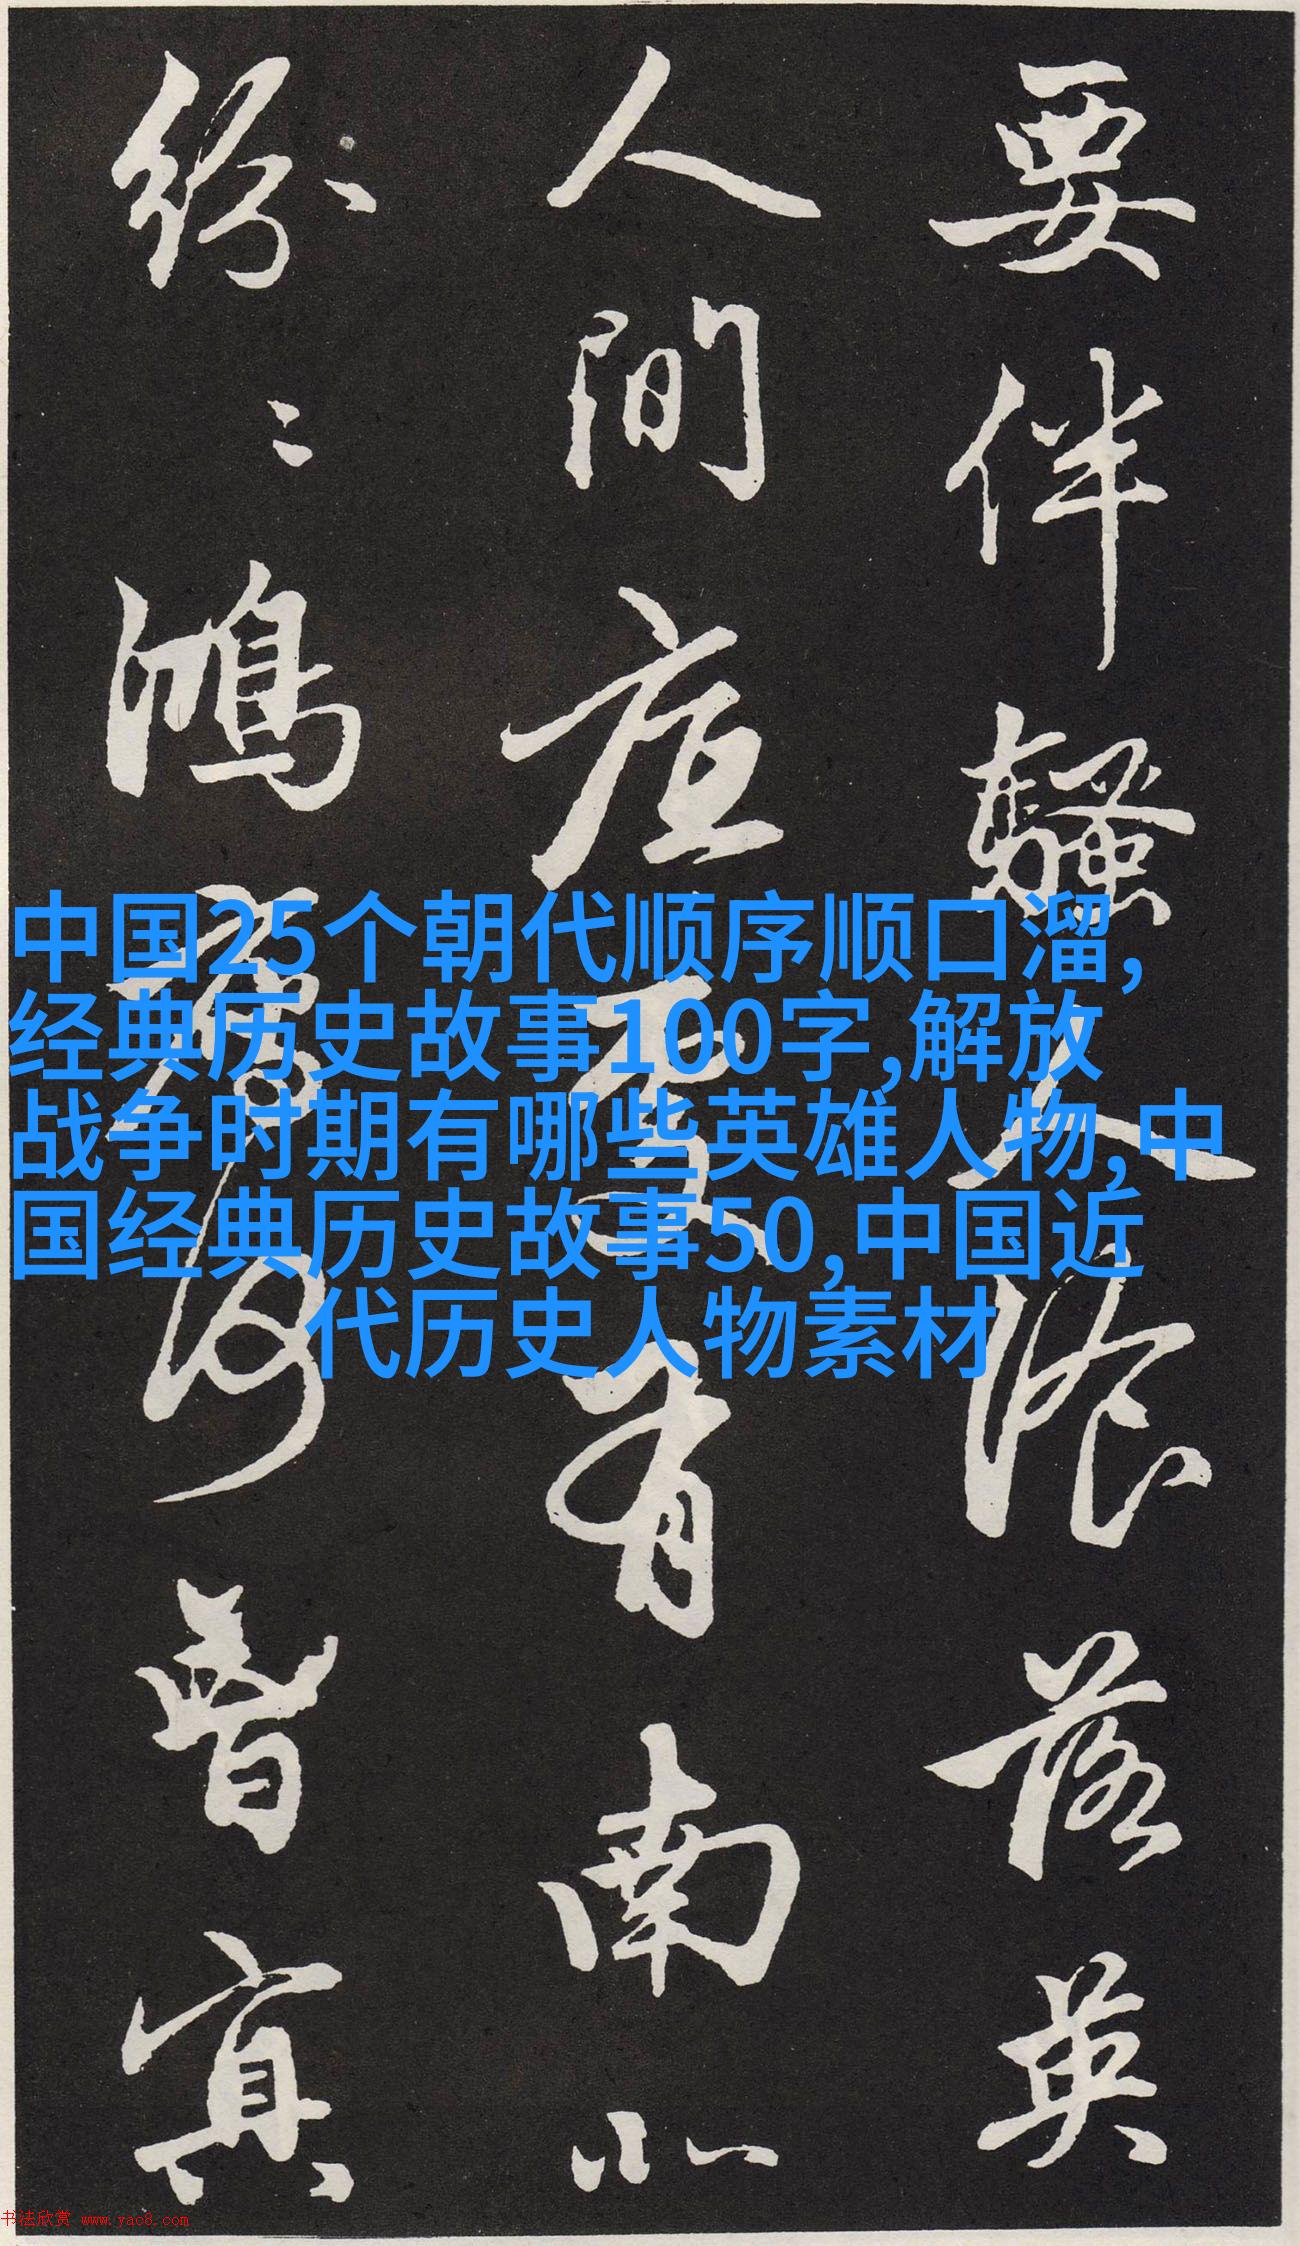 要伴騷人湌落英
人間底處有南北
紛〻鴻雁何曾冥
中国25个朝代顺序顺口溜,
经典历史故事100字,解放
战争时期有哪些英雄人物,中
国经典历史故事50,中国近
代历史人物素材
书法欣赏 www.yac8.com